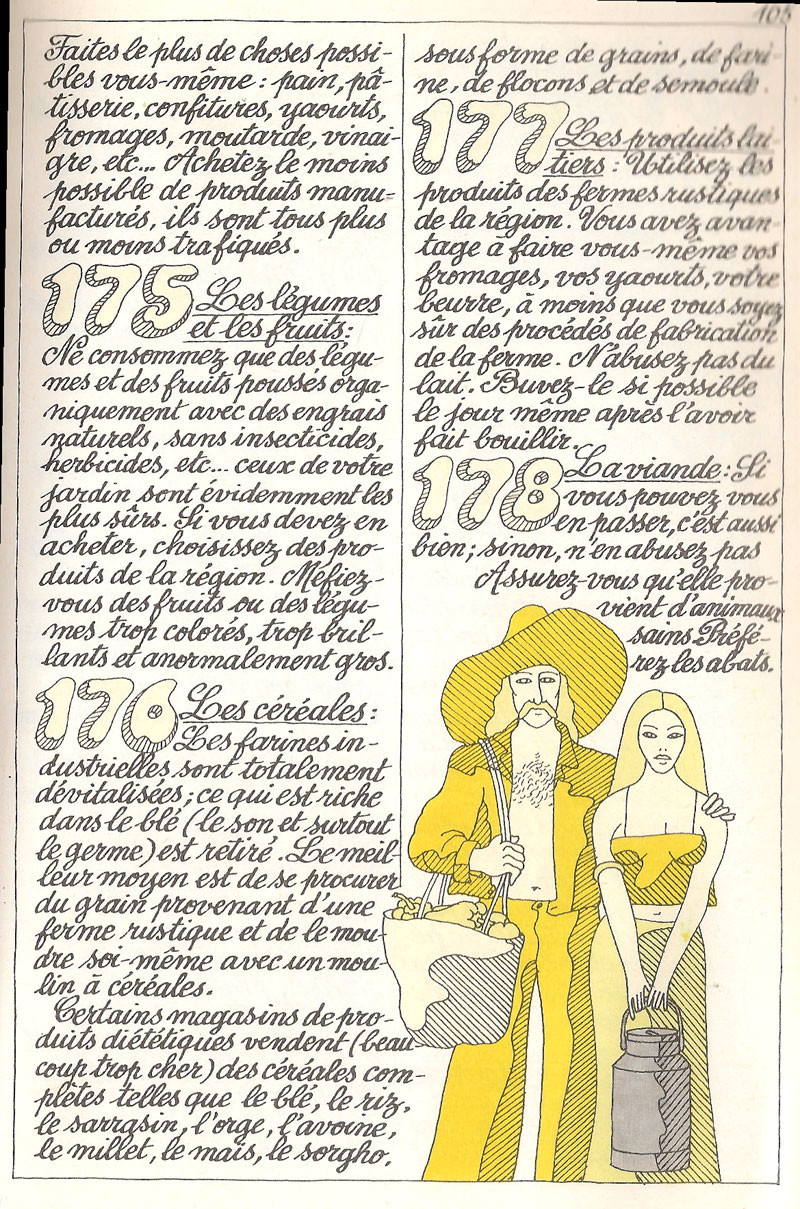 105
Faites le plus de choses possi-
bles vous-même : pain, pâ-
tisserie, confitures, yaourts,
fromages, moutarde, vinai-
gre, etc... Achetez le moins
possible de produits manu-
facturés, ils sont tous plus
ou moins trafiqués.
175 Les légumes
et les fruits :
Ne consommez que des légu-
mes et des fruits poussés orga-
niquement avec des engrais
naturels, sans insecticides,
herbicides, etc... ceux de votre
jardin sont évidemment les
plus sûrs. Si vous devez en
acheter, choisissez des pro-
duits de la région. Méfiez-
vous des fruits ou des légu-
mes trop colorés, trop bril-
lants et anormalement gros.
176 Les céréales :
Les farines in-
dustrielles sont totalement
dévitalisées ; ce qui est riche
dans le blé (le son et surtout
le germe) est retiré. Le meil-
leur moyen est de se procurer
du grain provenant d'une
ferme rustique et de le mou-
dre soi-même avec un mou-
lin à céréales.
Certains magasins de pro-
duits diététiques vendent (beau-
coup trop cher) des céréales com-
plètes telles que le blé, le riz,
le sarrasin, l'orge, l'avoine,
le millet, le maïs, le sorgho,
sous forme de grains, de fari-
ne, de flocons et de semoule.
177 Les produits lai-
tiers : Utilisez les
produits des fermes rustiques
de la région. Vous avez avan-
tage à faire vous-même vos
fromages, vos yaourts, votre
beurre, à moins que vous soyez
sûr des procédés de fabrication
de la ferme. N'abusez pas du
lait. Buvez-le si possible
le jour même après l'avoir
fait bouillir.
178 La viande : Si
vous pouvez vous
en passer, c'est aussi
bien ; sinon, n'en abusez pas
Assurez-vous qu'elle pro-
vient d'animaux
sains Préfé-
rez les abats.